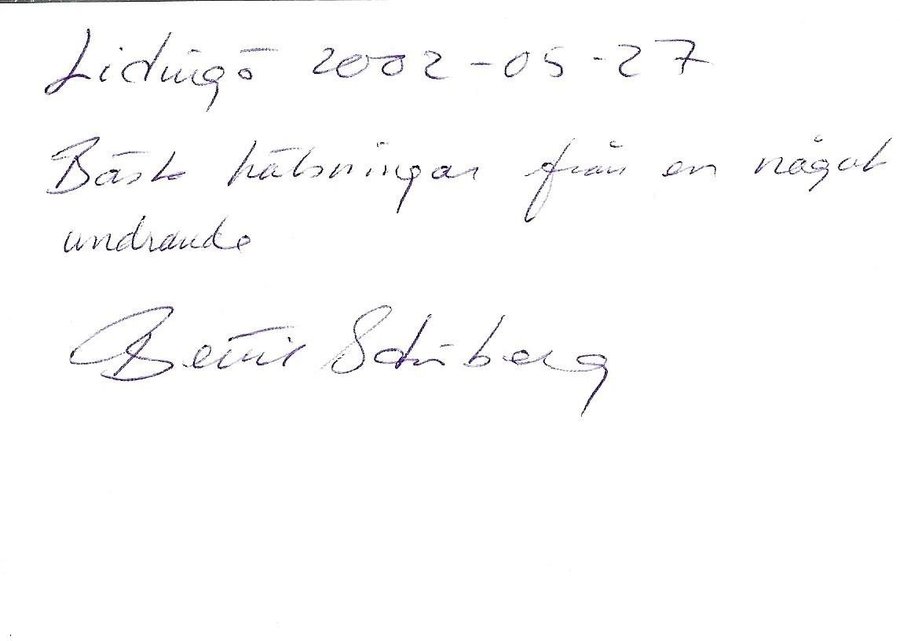 Lidingö 2002-05-27
Bästa hälsningar från en något
undrande
Bertil